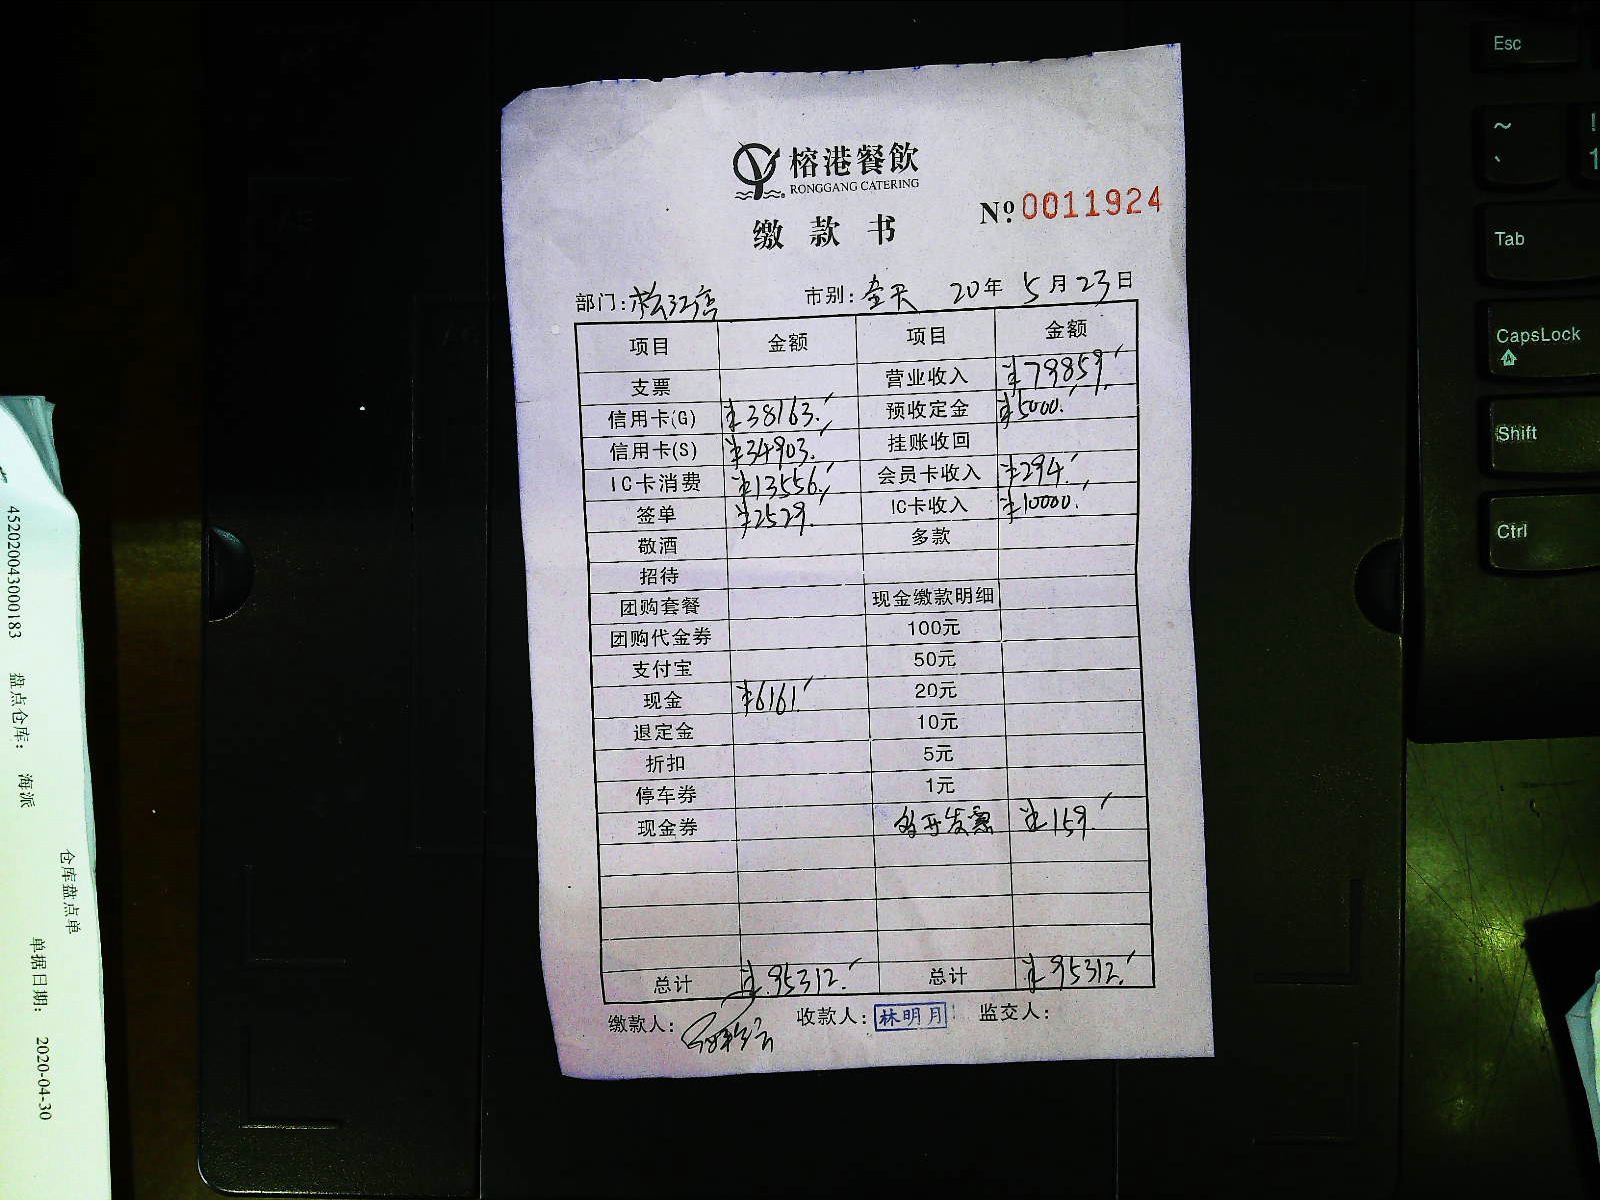 榕港餐飲
RONGGANG CATERING
缴款书
Nº 0011924
部门:松江 市别:全天 20年 5月23日
项目 金额 项目 金额
支票 营业收入 ¥79859.
信用卡(G) ¥38163. 预收定金 ¥5000.
信用卡(S) ¥34903. 挂账收回
IC卡消费 ¥13556. 会员卡收入 ¥294.
签单 ¥2529. IC卡收入 ¥10000.
敬酒 多款
招待
团购套餐 现金缴款明细
团购代金券 100元
支付宝 50元
现金 ¥6161. 20元
退定金 10元
折扣 5元
停车券 1元
现金券 多开发票 ¥159.
总计 ¥95312. 总计 ¥95312.
缴款人: 收款人:林明月 监交人:
452020043000183 盘点仓库: 海派
仓库盘点单
单据日期: 2020-04-30
Esc
~
`
!
1
Tab
CapsLock
Shift
Ctrl